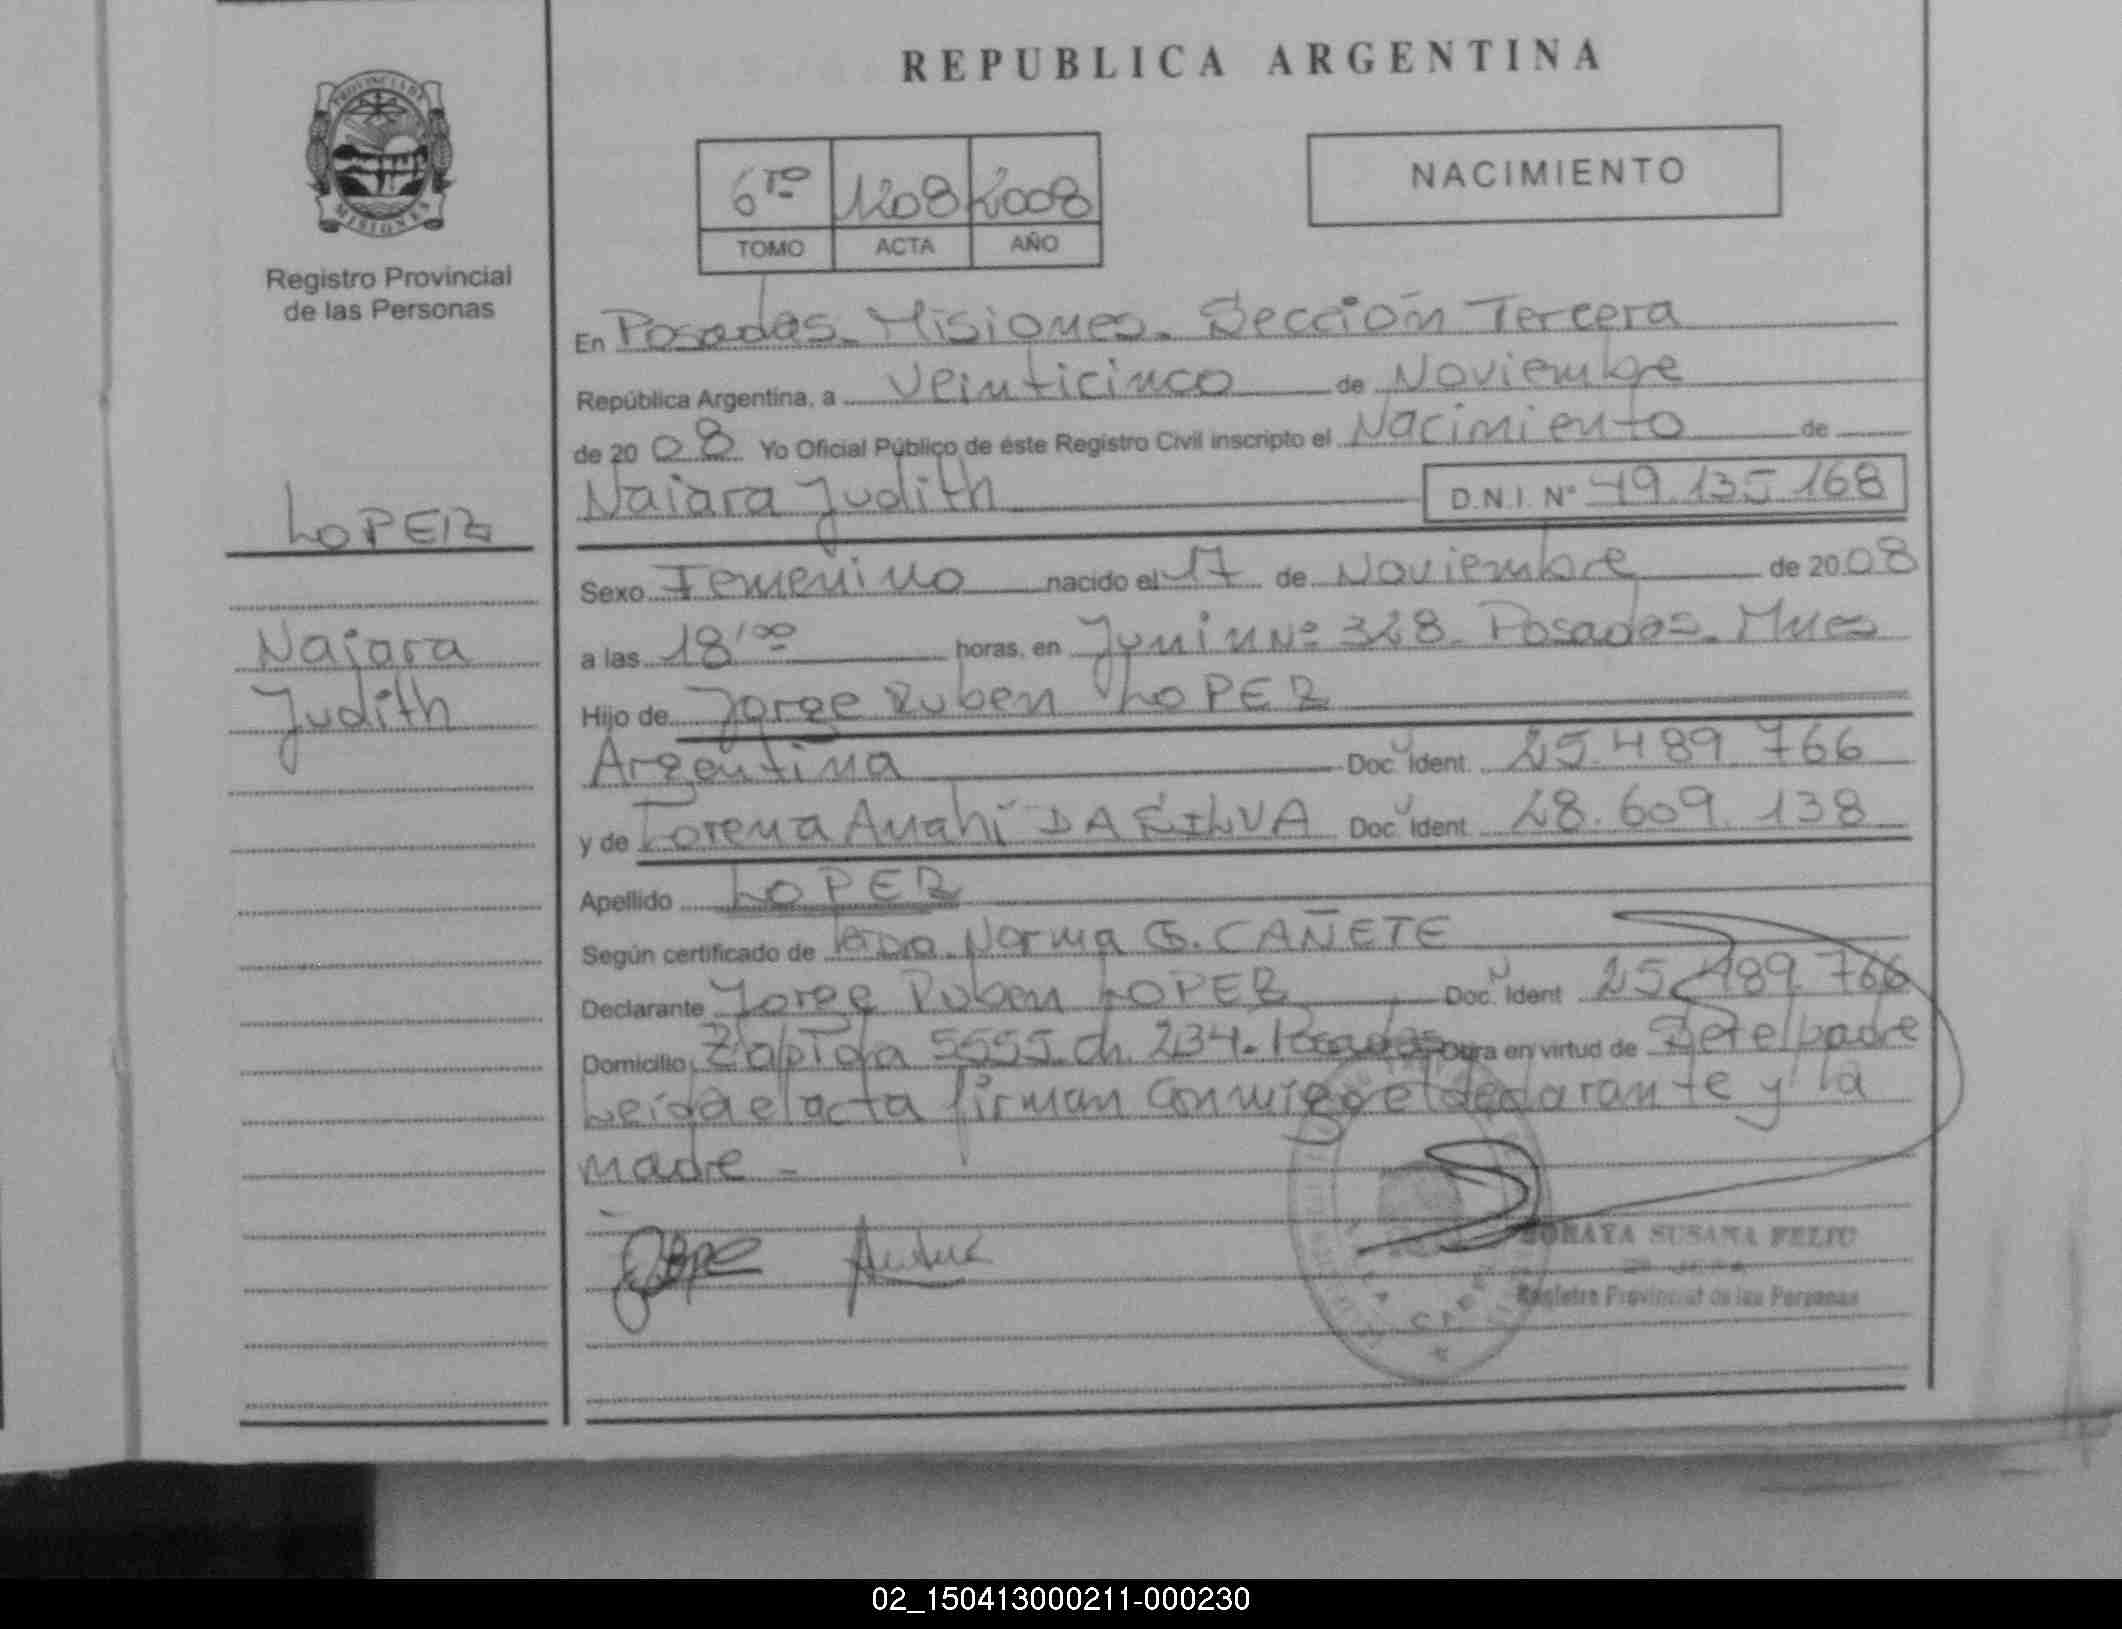 REPUBLICA ARGENTINA
PROVINCIA DE
MISIONES
Registro Provincial
de las Personas
NACIMIENTO
6to 1208 2008
TOMO ACTA AÑO
En Posadas. Misiones. Sección Tercera
República Argentina, a veinticinco de Noviembre
de 2008 Yo Oficial Público de éste Registro Civil inscripto el Nacimiento de
Naiara Judith D.N.I. Nº 49.135.168
LOPEZ
Naiara
Judith
Sexo Femenino nacido el 17 de Noviembre de 2008
a las 18'00 horas, en Junin Nº 328. Posadas. Mnes
Hijo de Jorge Ruben LOPEZ
Argentina Doc. Ident. 25.489.766
y de Lorena Anahí DA SILVA Doc. Ident. 28.609.138
Apellido LOPEZ
Según certificado de Norma G. CAÑETE
Declarante Jorge Ruben LOPEZ Doc. Ident 25.489.766
Domicilio Zapiola 5555. ch. 234. Posadas Obra en virtud de Ser el padre
Leida el acta firman conmigo el declarante y la
madre -
SORAYA SUSANA FELIU
Registro Provincial de las Personas
02_150413000211-000230